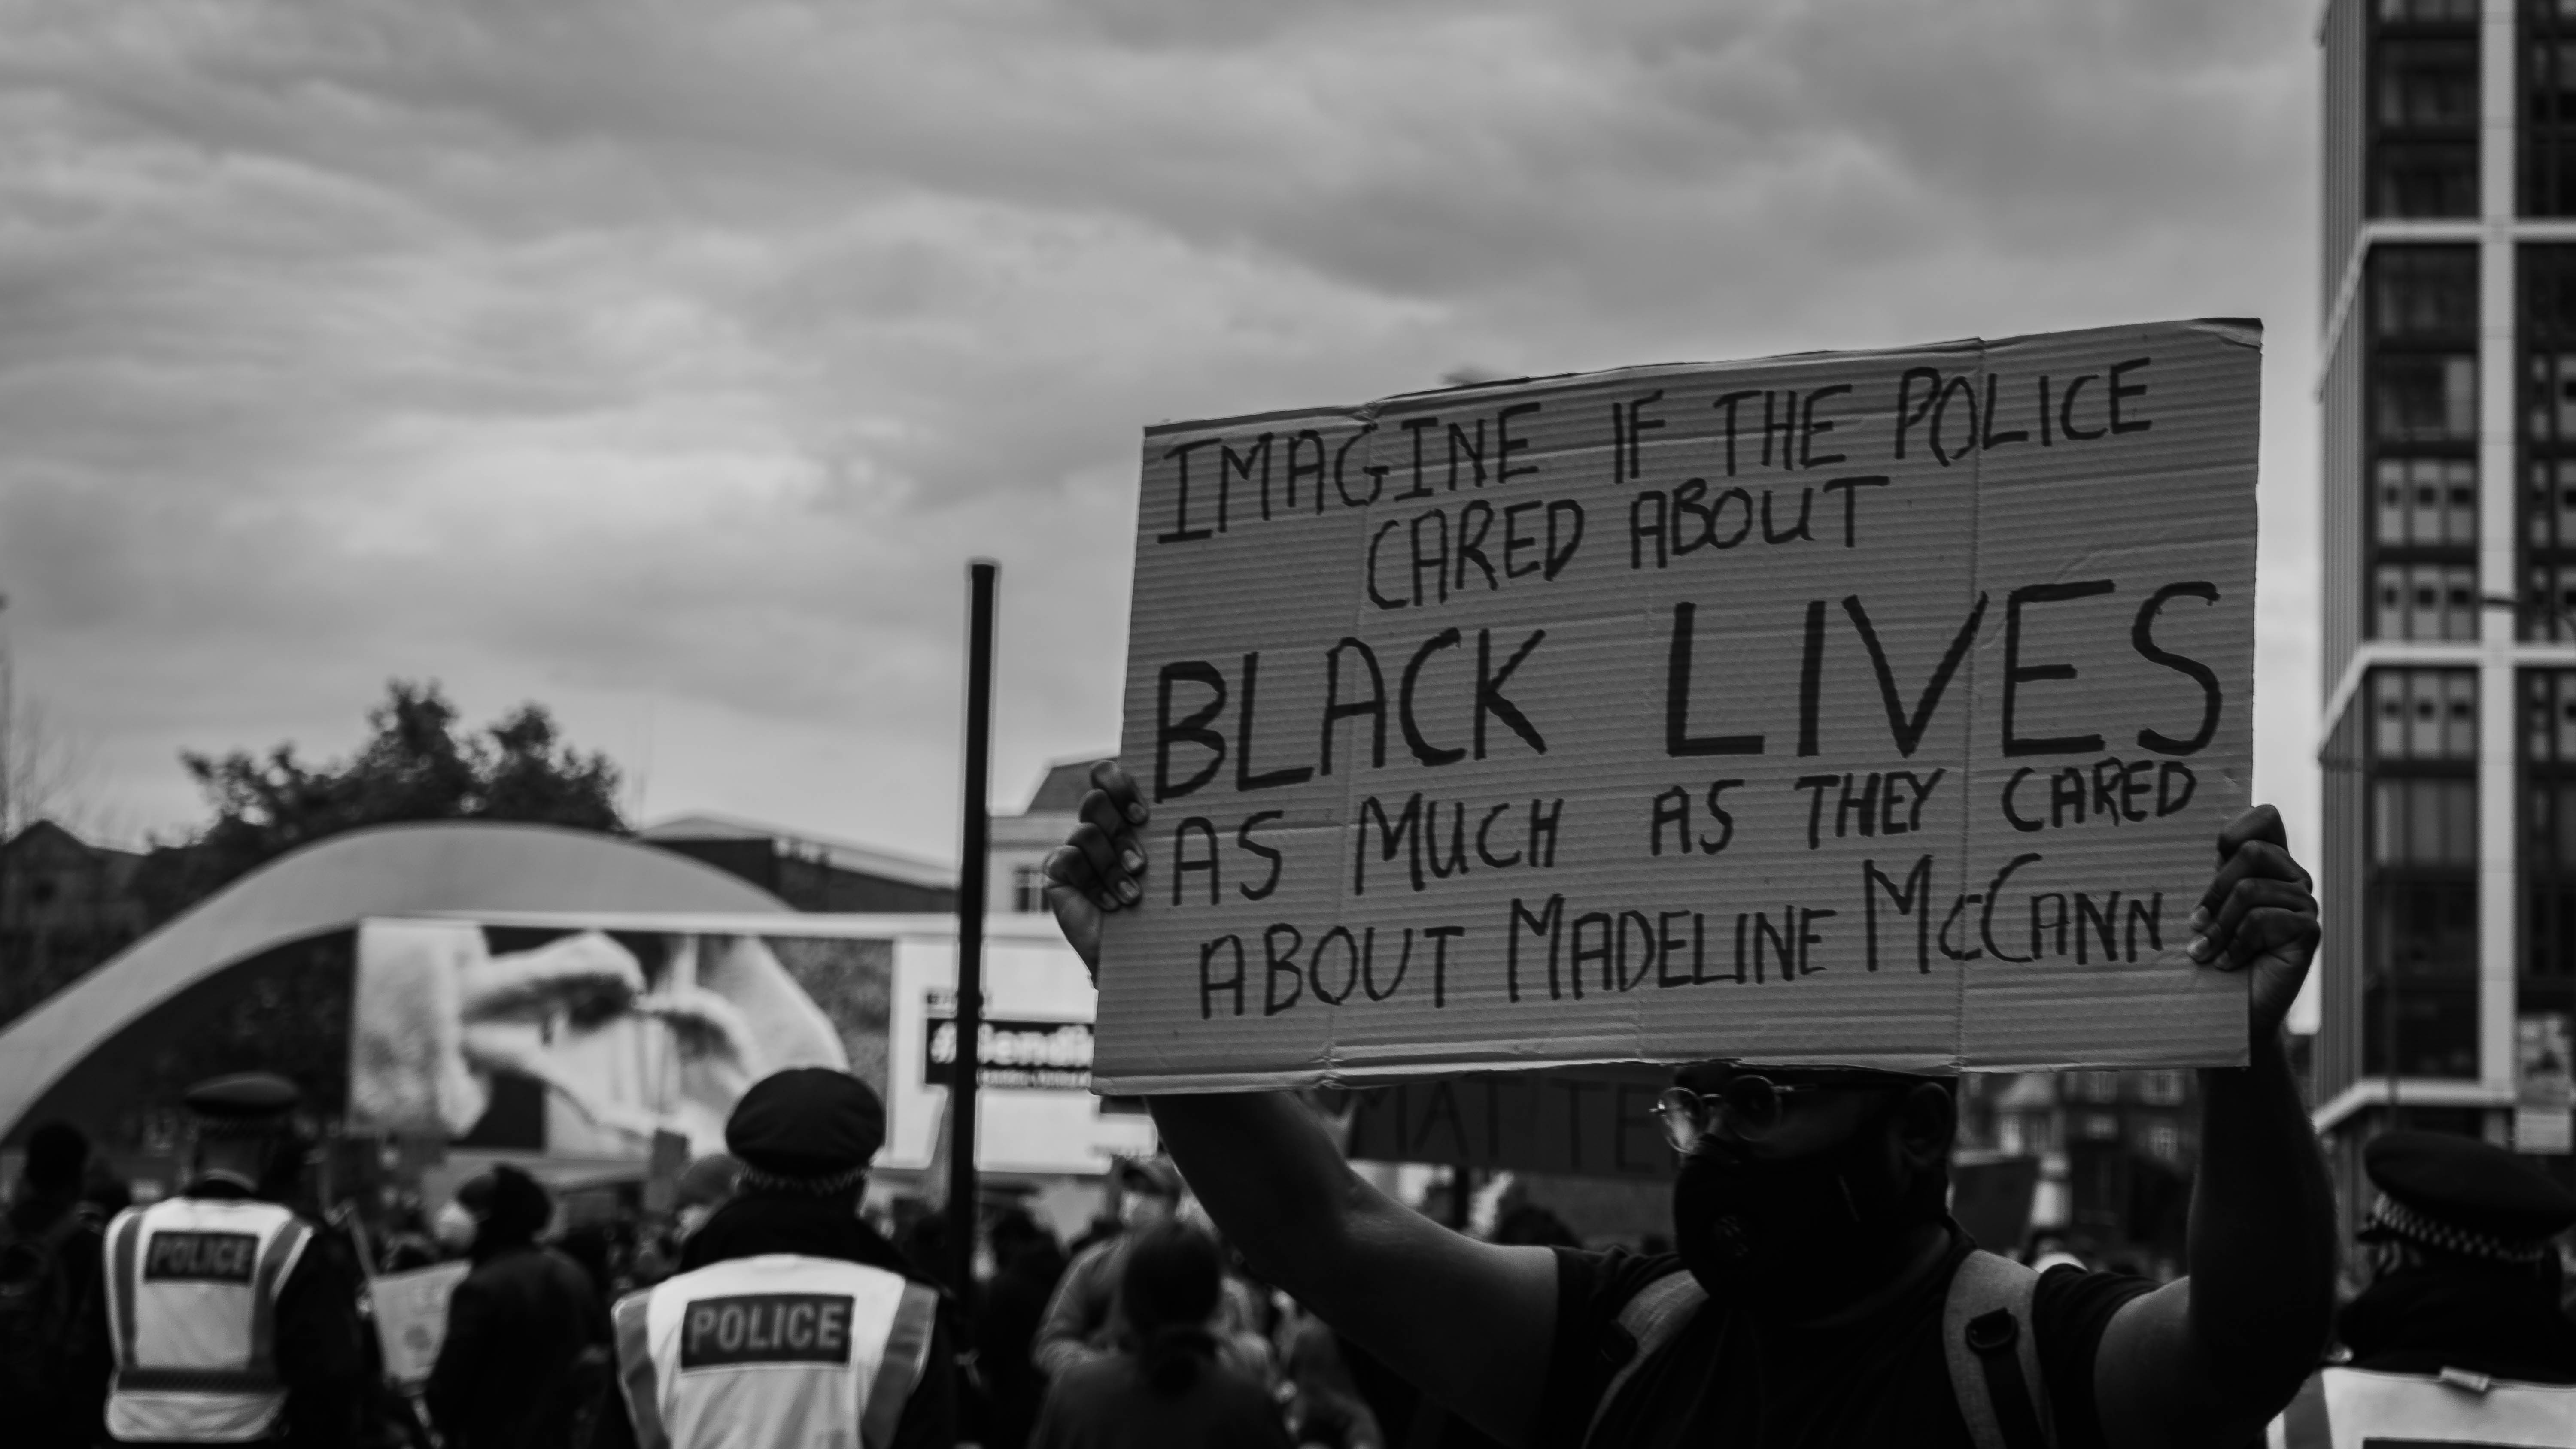 IMAGINE IF THE POLICE
CARED ABOUT
BLACK LIVES
AS MUCH AS THEY CARED
ABOUT MADELINE MCCANN
MATTE
POLICE
POLICE